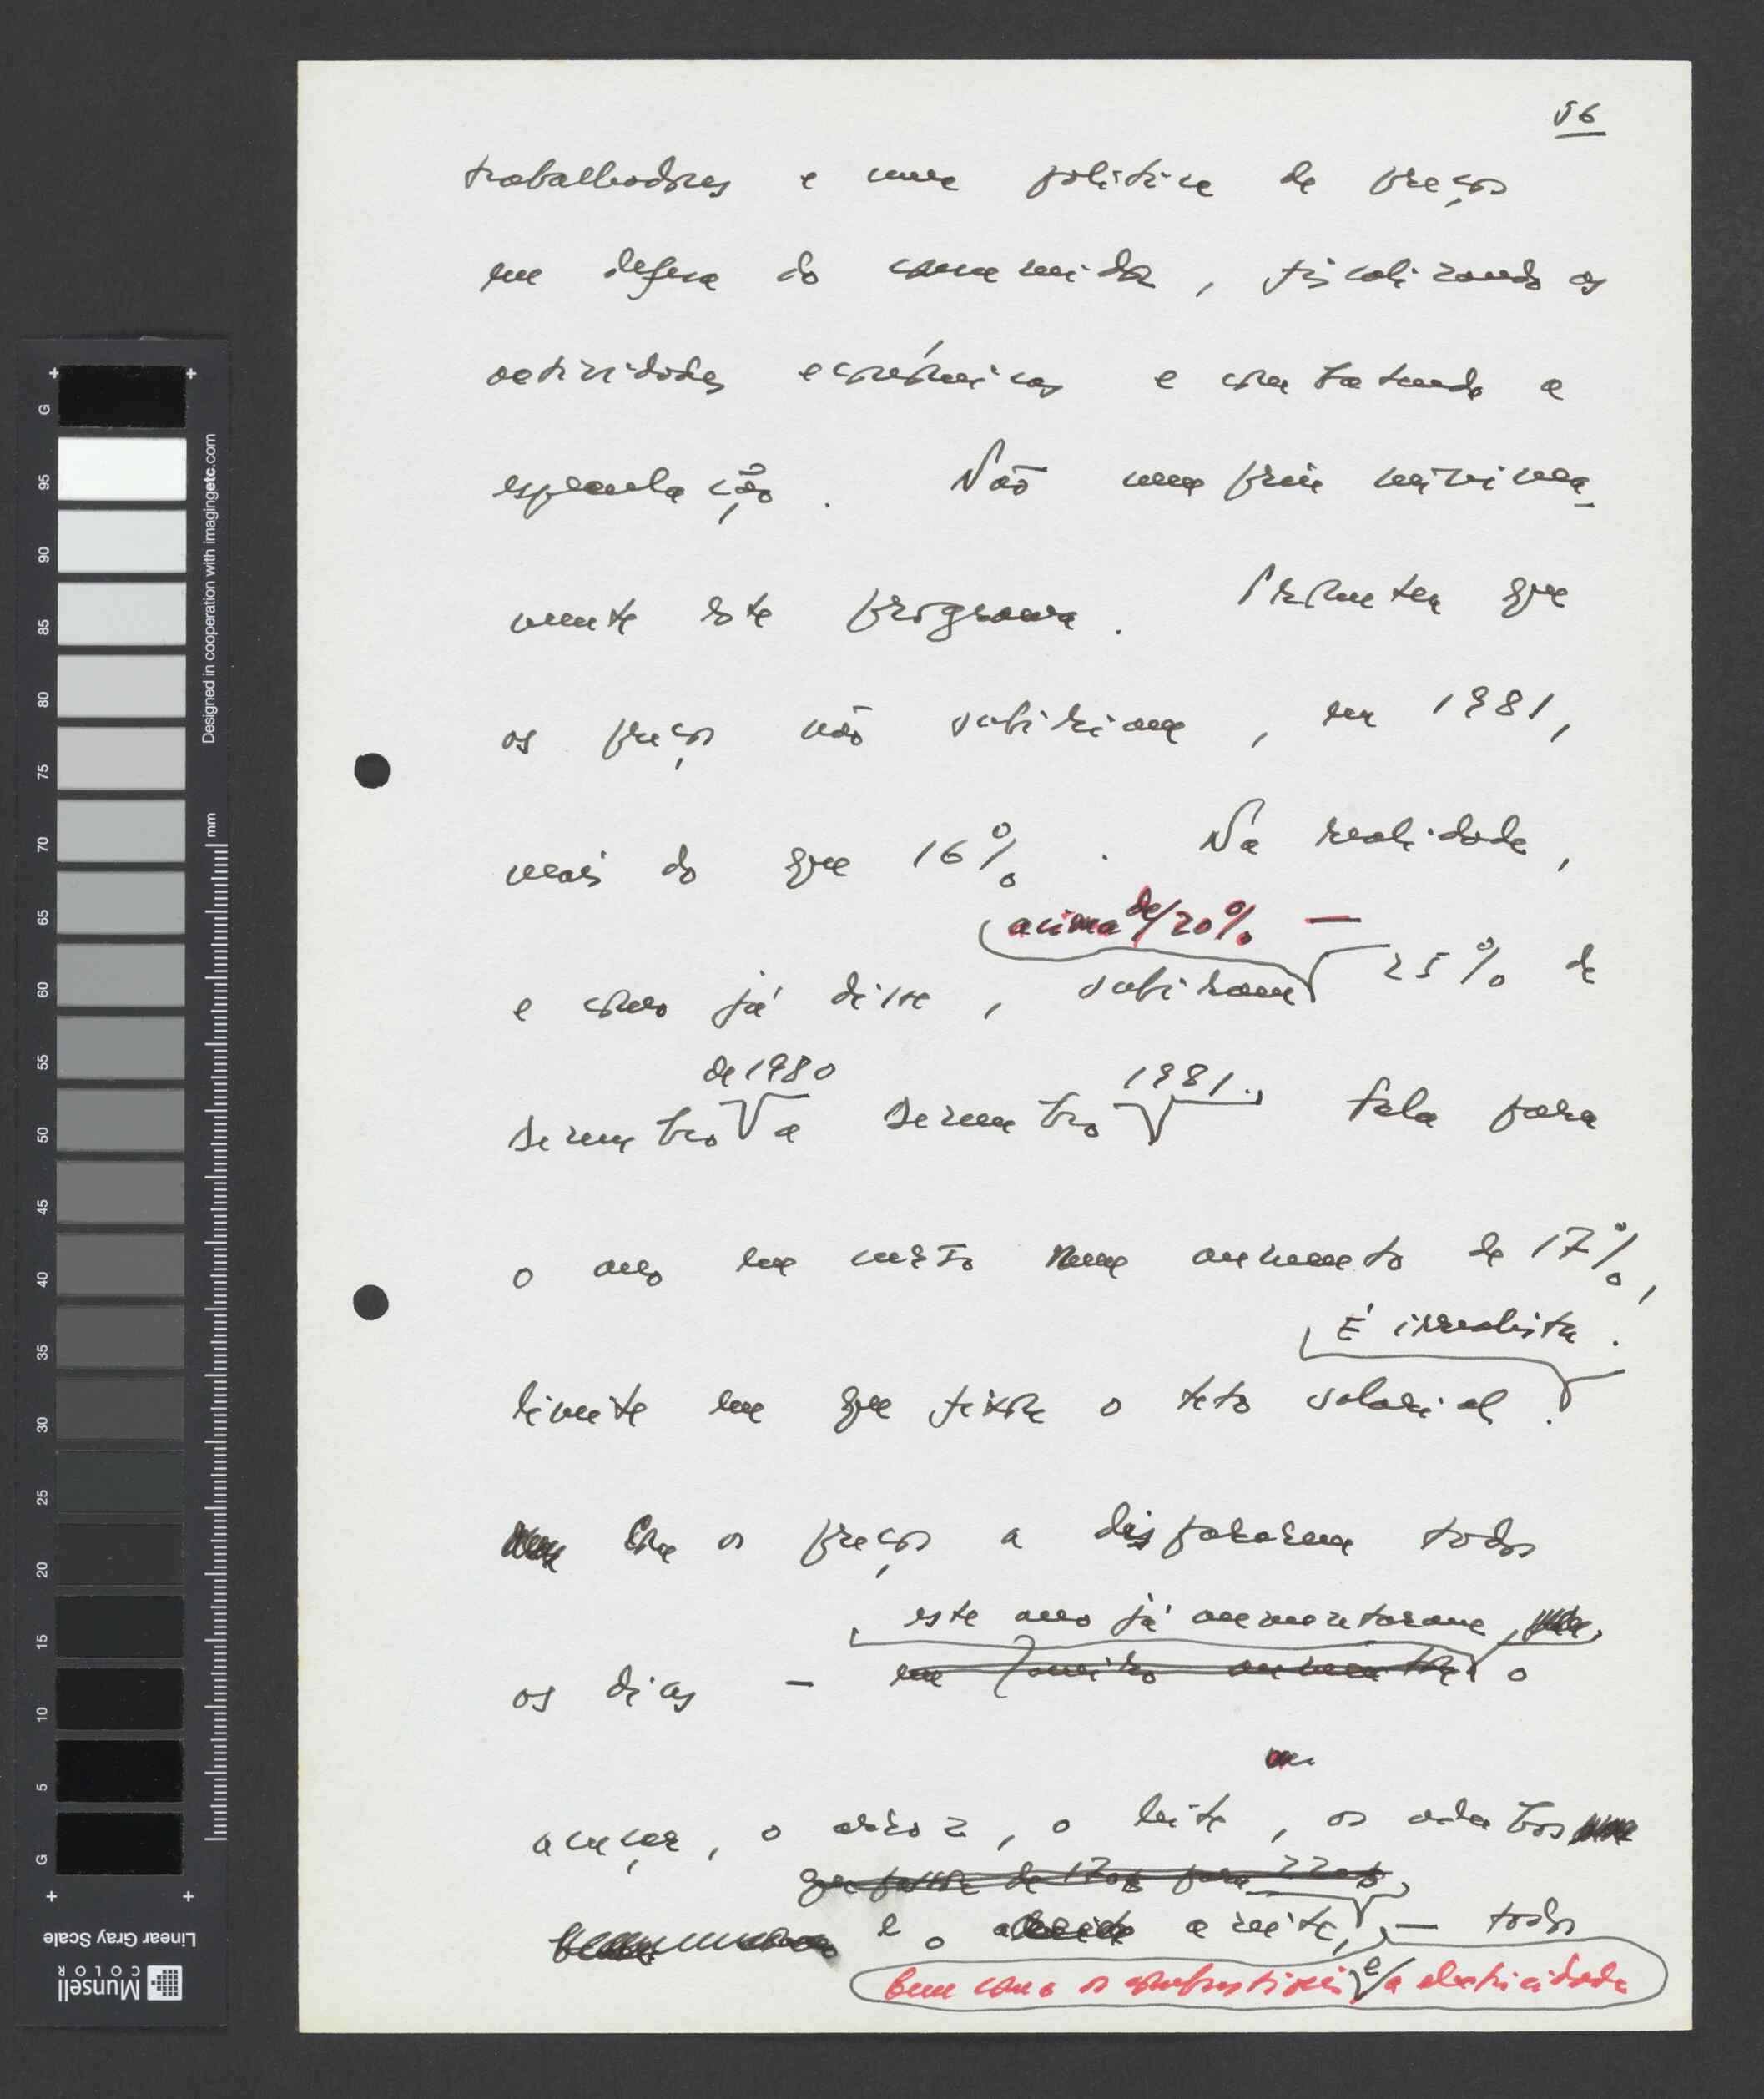 56
trabalhadores e uma política de preços
em defesa do consumidor, fiscalizando as
actividades económicas e combatendo a
especulação. Não cumpriu minima-
mente este programa. Prometeu que
os preços não subiriam, em 1981,
mais do que 16%. Na realidade,
acima de/20% —
e como já disse, subiram 25% de
de 1980 1981.,
Dezembro a Dezembro fala para
o ano em curso num aumento de 17%,
É irrealista.
limite em que fixou o teto salarial.
Com os preços a dispararem todos
este ano já aumentaram
os dias — em Janeiro aumentou o
açucar, o arroz, o leite, os adubos
que passou de 170$ para 220$,
e o azeite, — todos
bem como os combustíveis e/a electricidade
G 95 90 85 80 75 70 65 60 55 50 45 40 35 30 25 20 15 10 5 G
mm
Designed in cooperation with imagingetc.com
Munsell COLOR
Linear Gray Scale